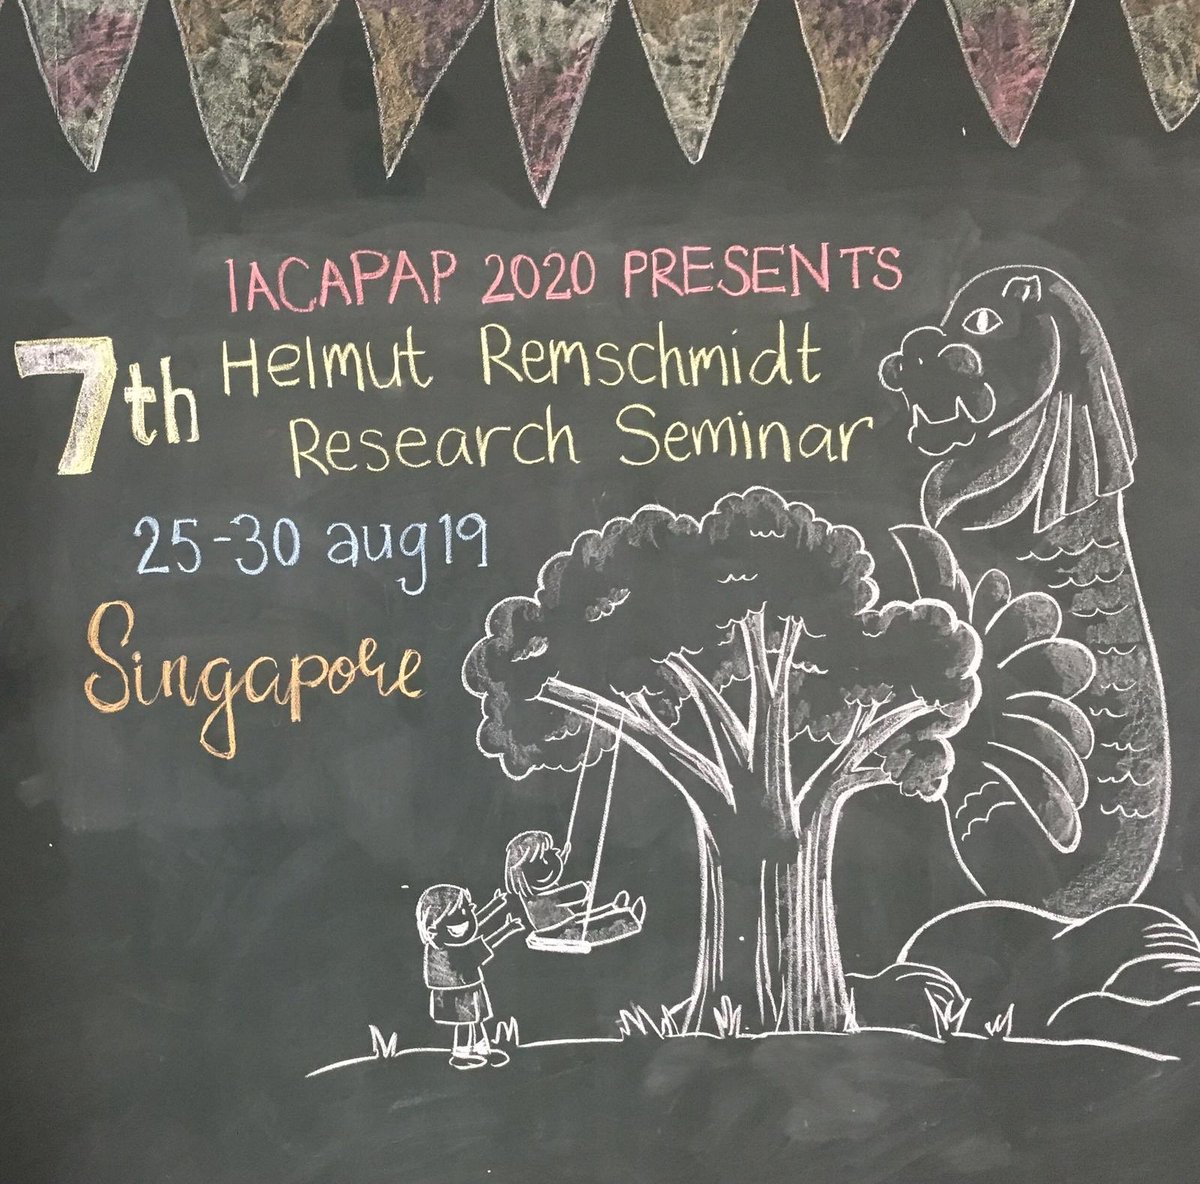 IACAPAP 2020 PRESENTS
7th Helmut Remschmidt
Research Seminar
25-30 aug 19
Singapore